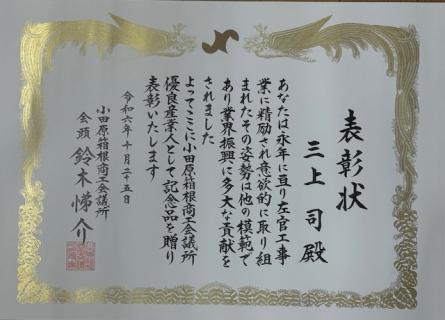 表彰状
三上 司 殿
あなたは永年に亘り左官工事
業に精励され意欲的に取り組
まれたその姿勢は他の模範で
あり業界振興に多大な貢献を
されました
よってここに小田原箱根商工会議所
優良産業人として記念品を贈り
表彰いたします
令和六年十月二十五日
小田原箱根商工会議所
会頭 鈴木悌介